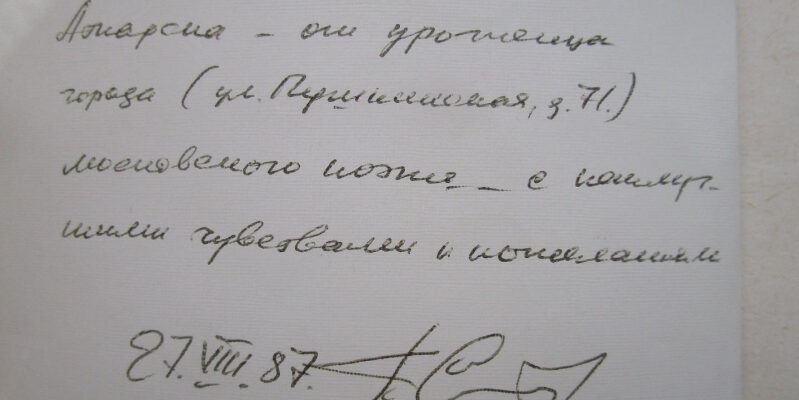 Аткарска - от уроженца
города (ул. Пушкинская, д. 71.)
московского поэта - с наилуч-
шими чувствами и пожеланиями
27.VIII.87.